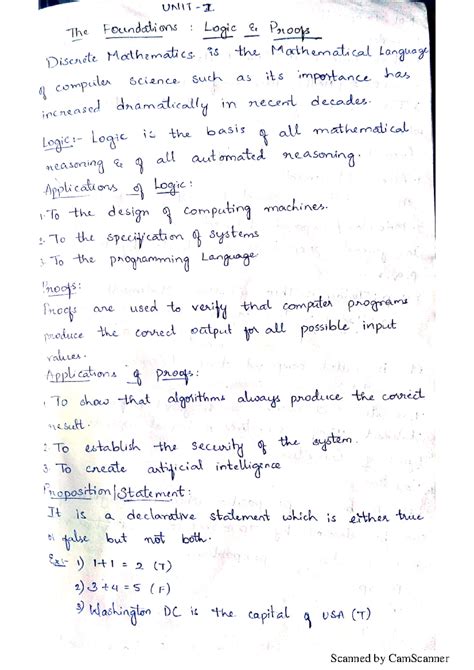 UNIT-I
The Foundations : Logic & Proofs
Discrete Mathematics is the Mathematical Language
of computer science such as its importance has
increased dramatically in recent decades.
Logic:- Logic is the basis of all mathematical
reasoning & of all automated reasoning.
Applications of Logic:
1. To the design of computing machines.
2. To the specification of systems
3. To the programming Language
Proofs:
Proofs are used to verify that computer programs
produce the correct output for all possible input
values.
Applications of proofs:
1. To show that algorithms always produce the correct
result.
2. To establish the security of the system.
3. To create artificial intelligence
Proposition/Statement:
It is a declarative statement which is either true
or false but not both.
Ex:- 1) 1+1 = 2 (T)
2) 3+4 = 5 (F)
3) Washington DC is the capital of USA (T)
Scanned by CamScanner